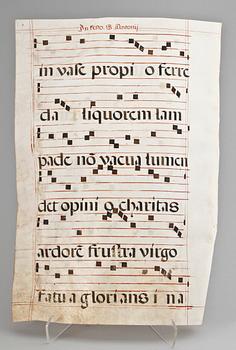 in vase propi o ferre
da liquorem lam
pade nō vacua lumen
det opini o charitas
ardorē frustra virgo
fatua glorians i na